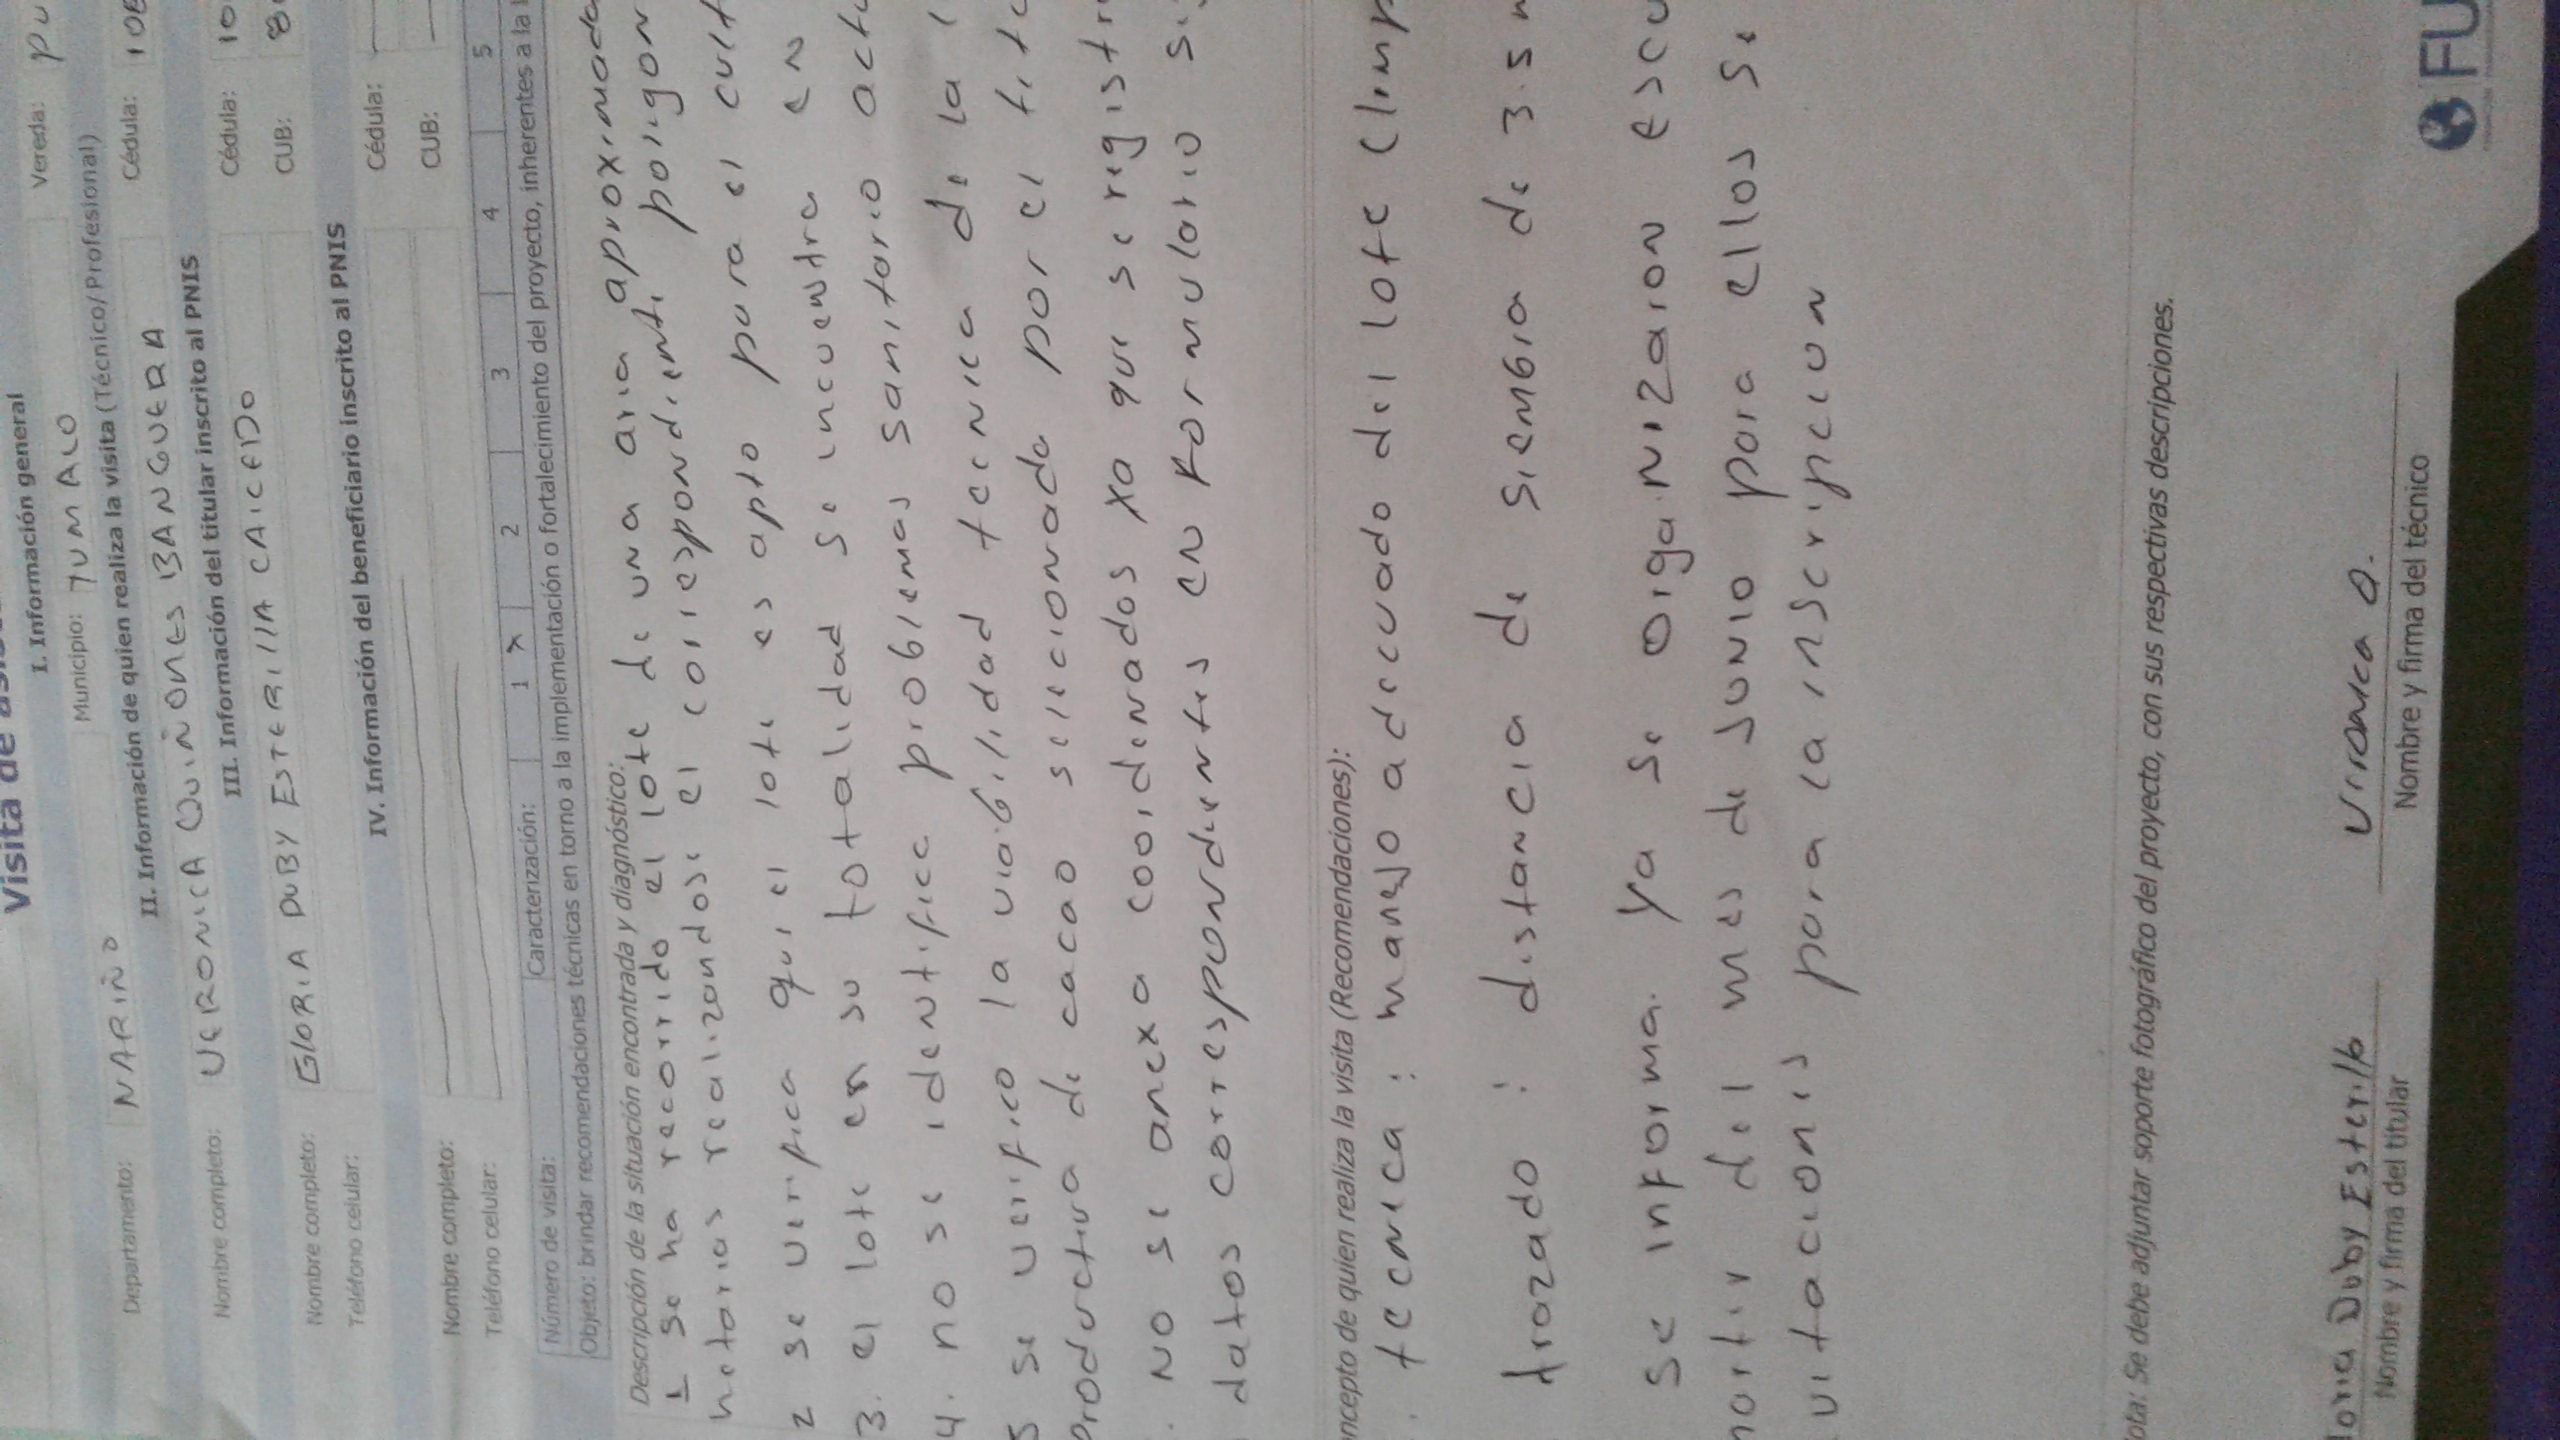 Visita de
I. Información general
Departamento: NARIÑO Municipio: TUMACO Vereda: pu
II. Información de quien realiza la visita (Técnico/Profesional)
Nombre completo: VERONICA QUIÑONES BANGUERA Cédula: 108
III. Información del titular inscrito al PNIS
Nombre completo: GlORIA DUBY ESTERIllA CAICEDO Cédula: 10
Teléfono celular: CUB: 8
IV. Información del beneficiario inscrito al PNIS
Nombre completo: Cédula:
Teléfono celular: CUB:
Número de visita: Caracterización: 1 X 2 3 4 5
Objeto: brindar recomendaciones técnicas en torno a la implementación o fortalecimiento del proyecto, inherentes a la
Descripción de la situación encontrada y diagnóstico:
1 se ha recorrido el lote de una aria aproximada
hetarias realizandose el correspondiente poligon
2 se verifica que el lote es apto para el cult
3. el lote en su totalidad se incuentra en
4. no se identifice problemas sanitario actu
5 se verifico la viabilidad tecnica de la
productiva de cacao selecionada por el tite
. No se anexa coordenados ya que se registr
datos correspondientes en Formulario si
ncepto de quien realiza la visita (Recomendaciones):
. tecnica : manejo adecuado del lote (limp
trazado : distancia de siembra de 3.5 m
se informa. ya se organizaron escu
partir del mes de Junio para ellos se
vitaciones para la inscripcion
ota: Se debe adjuntar soporte fotográfico del proyecto, con sus respectivas descripciones.
loria Duby Esterilla Vironica Q.
Nombre y firma del titular Nombre y firma del técnico
FU